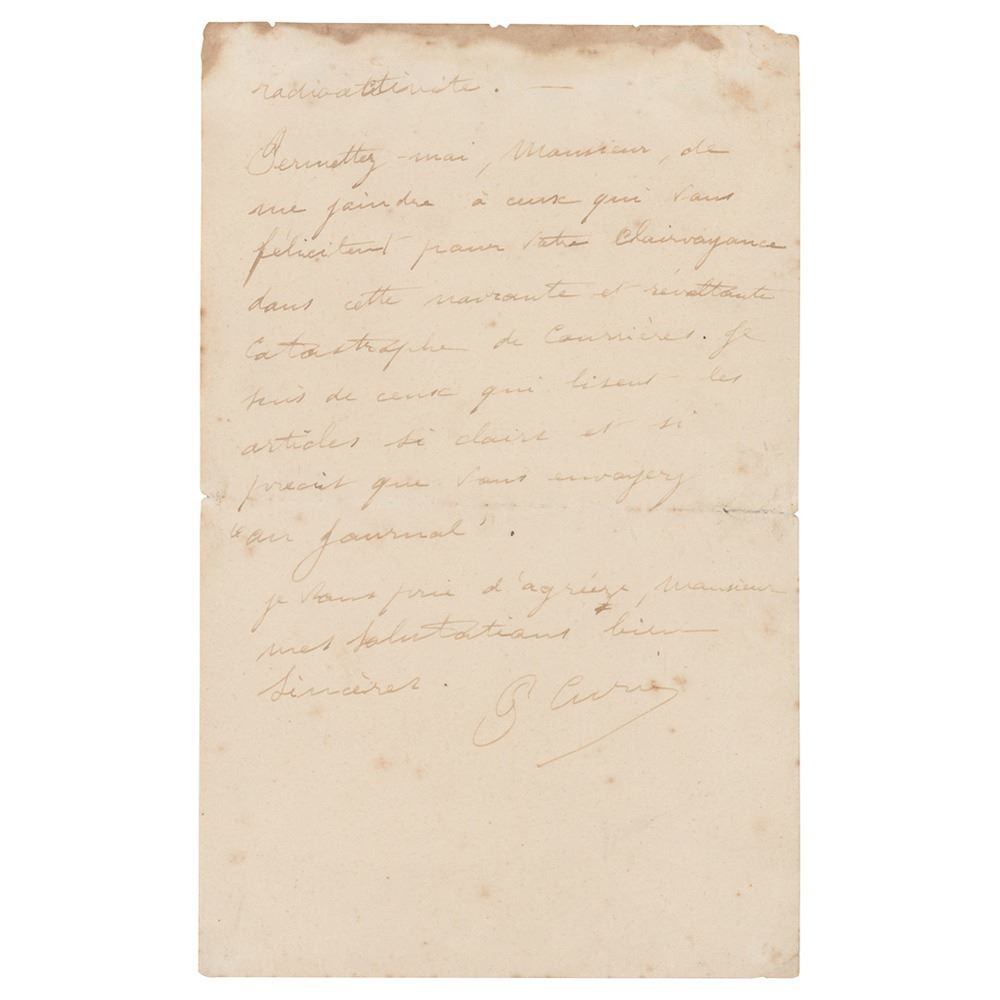 radioactivité. —
Permettez-moi, Monsieur, de
me joindre à ceux qui vous
félicitent pour votre clairvoyance
dans cette navrante et révoltante
catastrophe de Courrières. Je
suis de ceux qui lisent les
articles si clairs et si
précis que vous envoyez
"au Journal".
je vous prie d'agréer, Monsieur
mes salutations bien
sincères.
P Curie